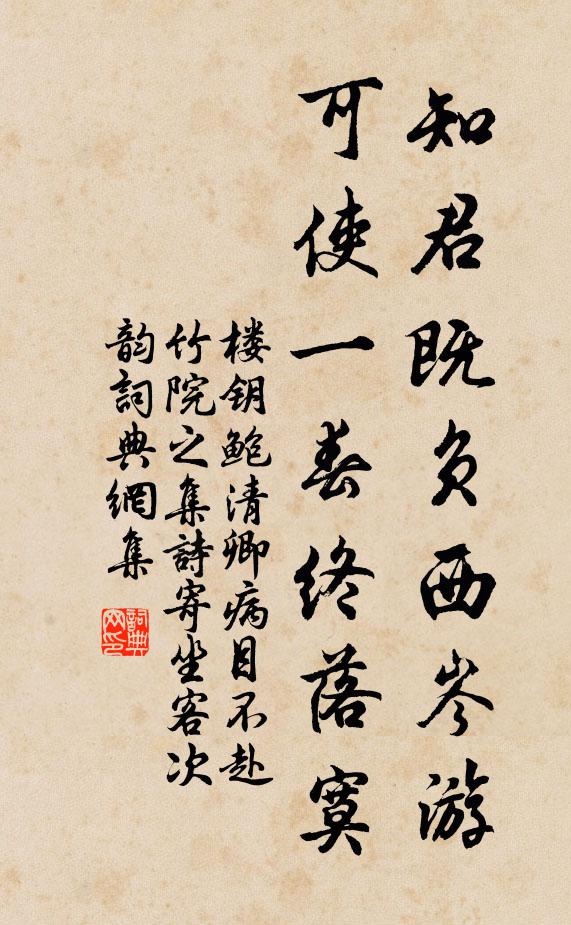 知君既负西岑游
可使一春终落寞
楼钥鲍清卿病目不赴
竹院之集詩寄坐客次
韵詞典網集
詞典
网印